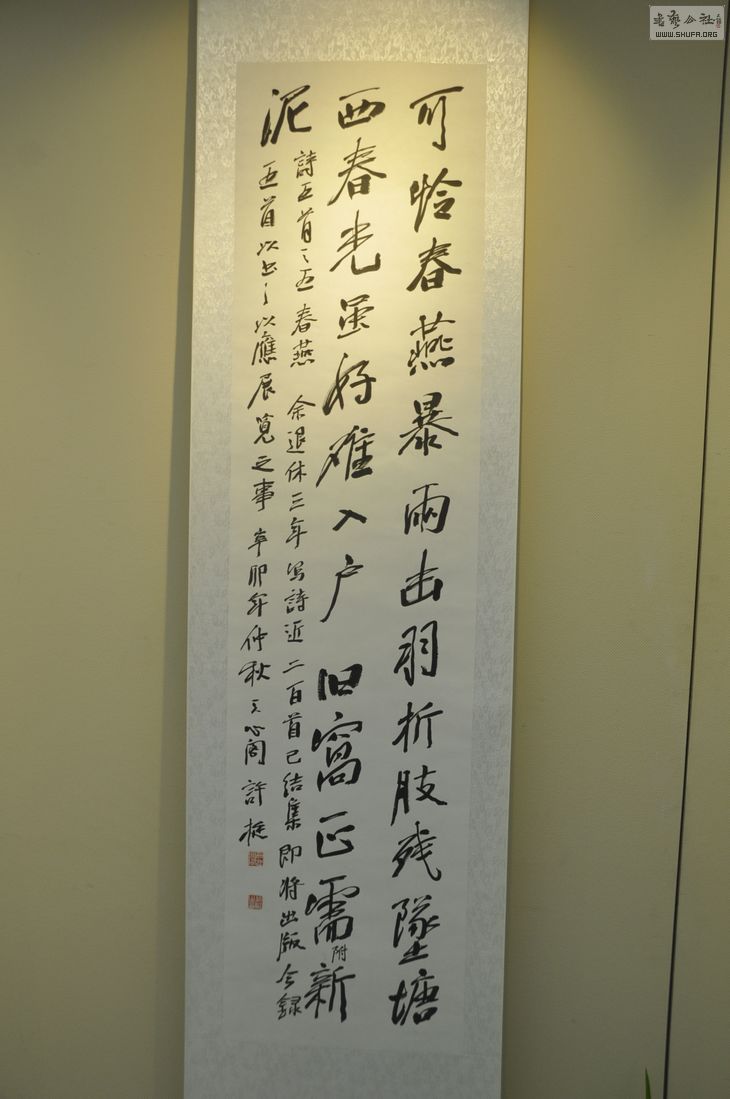 可怜春燕暴雨击羽折肢残坠塘
西春光虽好难入户旧窝正需附新
泥
詩五首之五春燕余退休三年写詩近二百首已结集即将出版今録
五首以书之以應展览之事辛卯年仲秋天心阁許挺
書藝公社
WWW.SHUFA.ORG